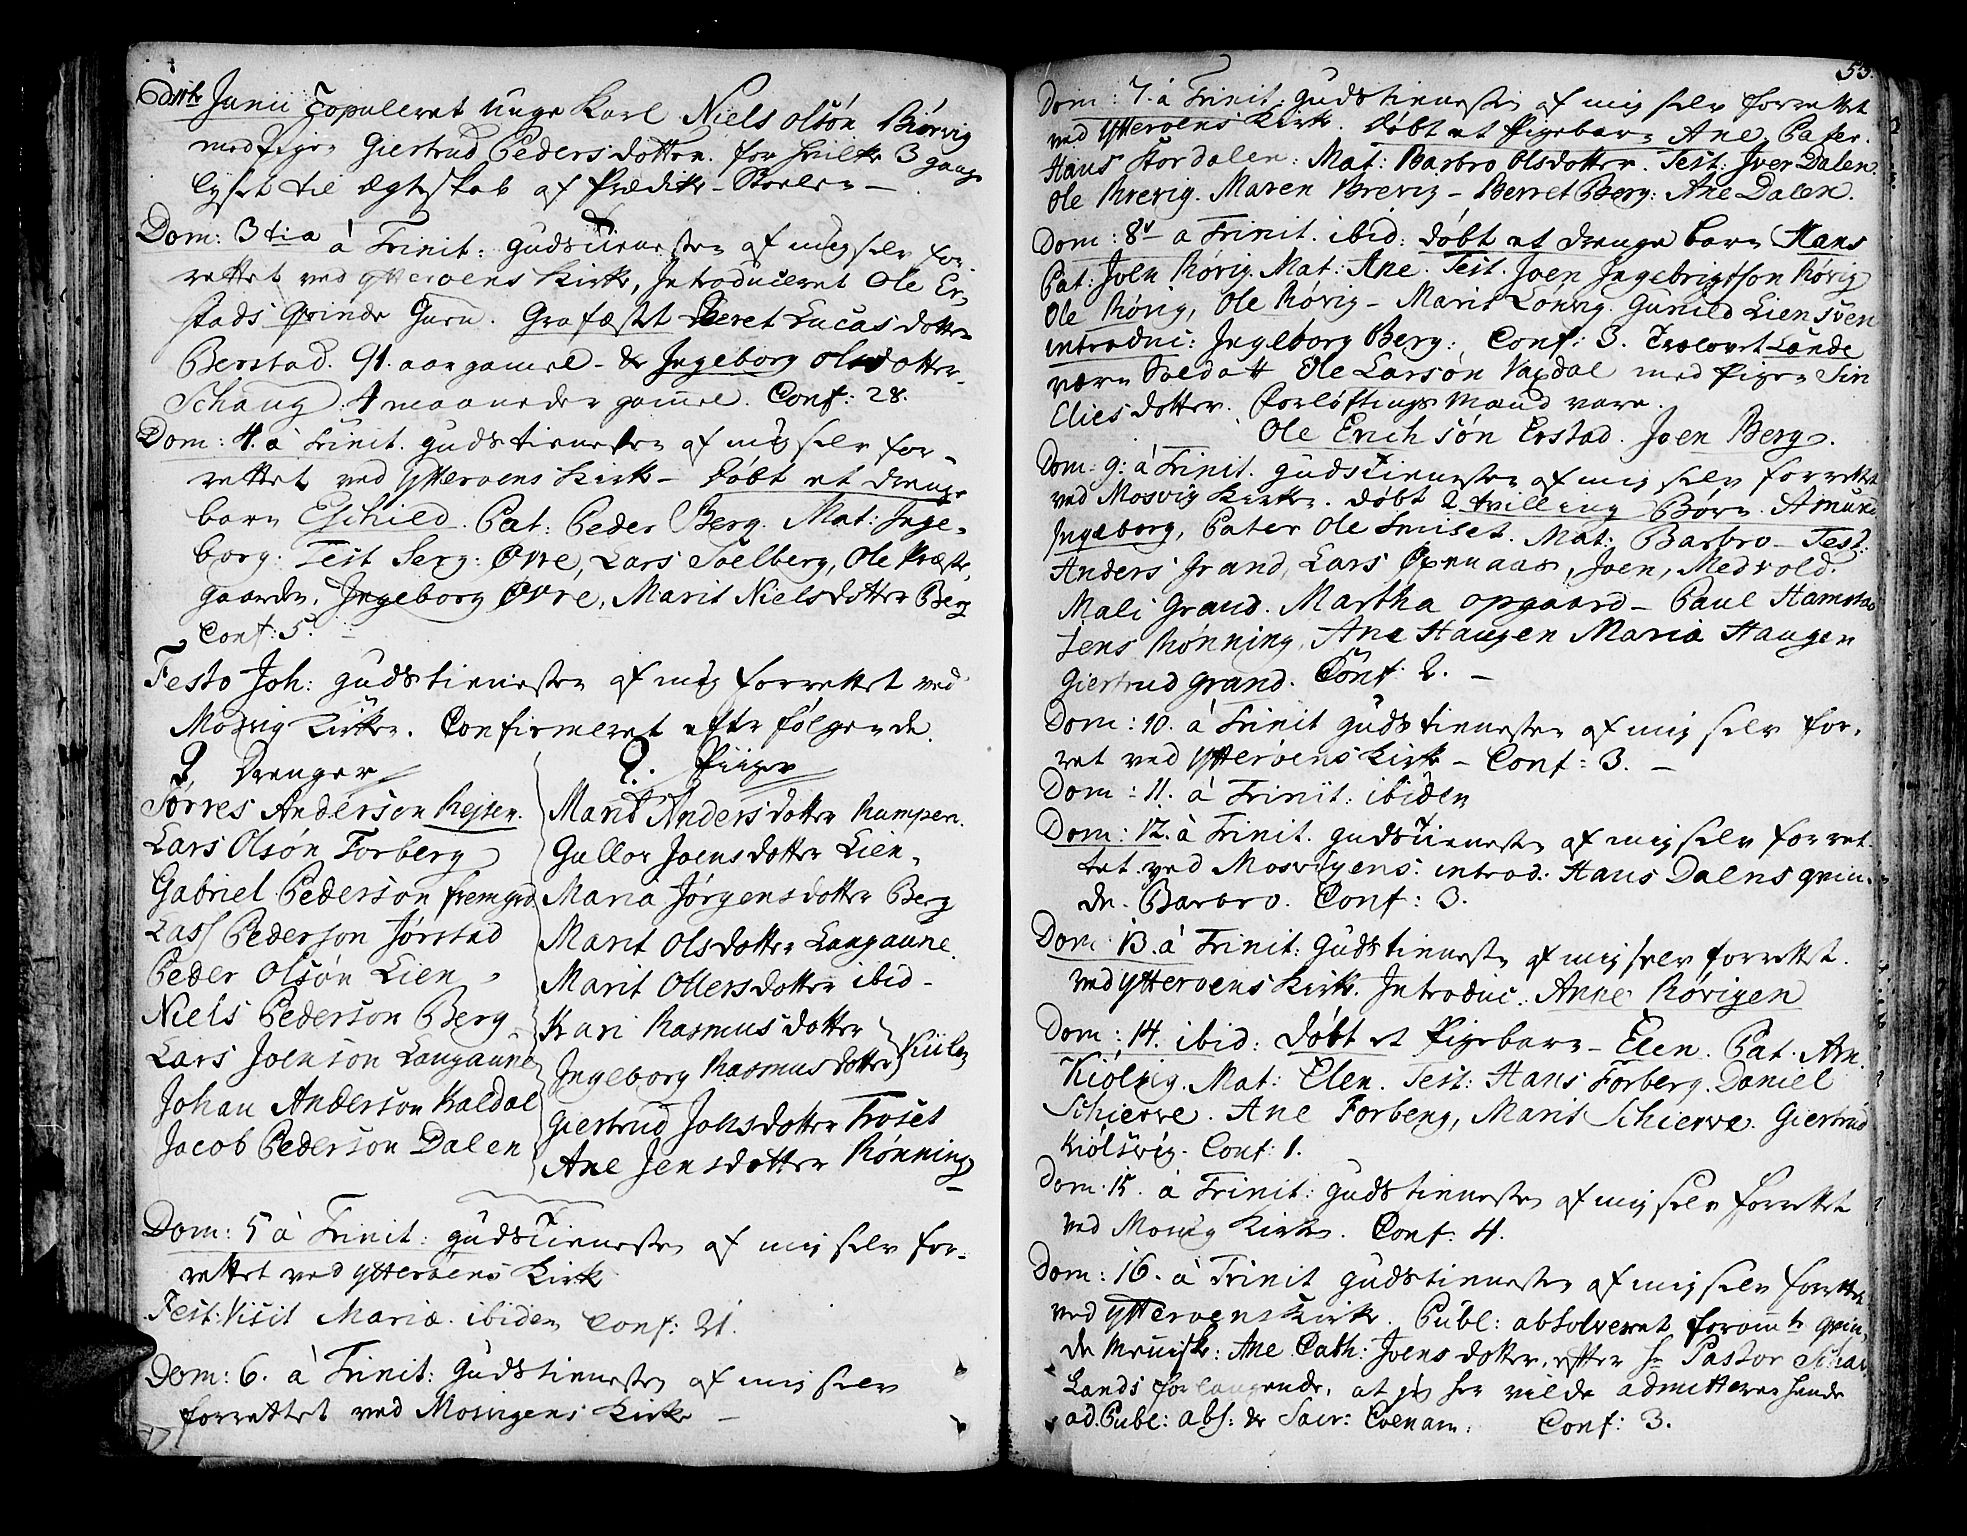 6dete Junii Copuleret Unge Karl Niels Olsøn Biørvig
med Pigen Giertrud Pedersdotter. for hvilke 3 gang
lyst til Ægteskab af Prædike-Stoelen –
Dom: 3tia à Trinit: Gudstienesten af mig selv for-
rettet ved Ytterøens Kirke, Introduceret Ole Er-
stads Qvinde Guru. Grafæstet Beret Lucasdotter
Berstad. 91. aar gamel – & Ingeborg Olsdotter
Schaug. 4 maaneder gamel. Conf: 28.
Dom: 4. à Trinit. Gudstienesten af mig selv for-
rettet ved Ytterøens Kirke – Døbt et Drenge
barn Eschild. Pat: Peder Berg. Mat: Inge-
borg. Test Serg: Øvre, Lars Soelberg, Ole Præste-
gaarden, Ingeborg Øvre, Marit Nielsdotter Berg
Conf: 5.
Festo Joh: Gudstienesten af mig forrettet ved
Mosvig Kirke. Confirmeret efterfølgende
9. Drenger
Torres Anderson Rejsen.
Lars Olsøn Forberg
Gabriel Pederson Fremgrd
Lass Pederson Jørstad
Peder Olsøn Lien
Niels Pederson Berg
Lars Joenson Langaune
Johan Anderson Kaldal
Jacob Pederson Dalen
9. Piiger
Marit Andersdotter Rumpen.
Gullor Joensdotter Lien
Maria Jørgensdotter Berg
Marit Olsdotter Langaune.
Marit Ollersdotter ibid –
Kari Rasmusdotter
Ingeborg Rasmusdotter
Giertrud Johsdotter Troset
Ane Jensdotter Rønning
Dom: 5 à Trinit: Gudstienesten af mig selv for-
rettet ved Ytterøens Kirke
Fest: Visit Mariæ. ibidem Conf: 21.
Dom: 6. à Trinit: Gudstienesten af mig selv
forrettet ved Mosvigens Kirke –
53.
Dom: 7. à Trinit. Gudstienesten af mig selv forrettet
ved Ytterøens Kirke. Døbt et Pigebarn Ane Pater.
Hans Stordalen: Mat: Barbro Olsdotter. Test: Iver Dalen
Ole Brevig. Maren Brevig – Berret Berg: Ane Dalen.
Dom: 8v à Trinit. ibid: døbt et drenge barn Hans
Pat: Joen Røvig. Mat: Ane. Test. Joen Ingebrigtson Røvig
Ole Røvig, Ole Røvig – Marit Lonvig. Gunild Lien Sven
introduc: Ingeborg Berg: Conf: 3. Trolovet Lande
værn Soldatt Ole Larsøn Vaxdal med Pigen Siri
Eliesdotter. Forløftings Mænd vare.
Ole Erichsøn Erstad. Joen Berg.
Dom: 9: à Trinit. Gudstienesten af mig selv forrettet
ved Mosvig Kirke. døbt 2 tvilling Børn. Amund
Ingeborg, Pater Ole Smiset. Mat: Barbro – Test:
Anders Grand, Lars Øxnaas, Joen, Medvold.
Mali Grand. Martha Opgaard – Paul Hamstad
Jens Rønning, Ane Haugen Maria Haugen
Giertrud Grand. Conf: 2. –
Dom: 10. à Trinit Gudstienesten af mig selv for-
ret ved Ytterøens Kirke – Conf: 3. –
Dom: 11. à Trinit: ibidem
Dom: 12. à Trinit. Gudstienesten af mig selv forret
tet ved Mosvigens: introd: Hans Dalens qvin-
de. Barbro. Conf: 3.
Dom: 13. à Trinit: Gudstienesten af mig selv forrettet.
ved Ytterøens Kirke. Introduc: Anne Røvigen
Dom: 14. ibid: Døbt et Pigebarn – Elen. Pat. Arn.
Kiølvig. Mat: Elen. Test: Hans Forberg. Daniel
Schierve. Ane Forberg, Marit Schierve. Giertrud
Kiølsvig. Conf: 1.
Dom. 15. à Trinit: Gudstienesten af mig selv forrettet
ved Mosvig Kirke. Conf: 4.
Dom: 16. à Trinit Gudstienesten af mig selv forrettet
ved Ytterøens Kirke. Publ: absolveret qvin-
de Meniske: Ane Cath: Joensdotter, efter hr Pastor
Lands forlangende, at jeg her vilde admittere hende
ad. Publ: abs: & Sacr: Coenam. Conf: 3.